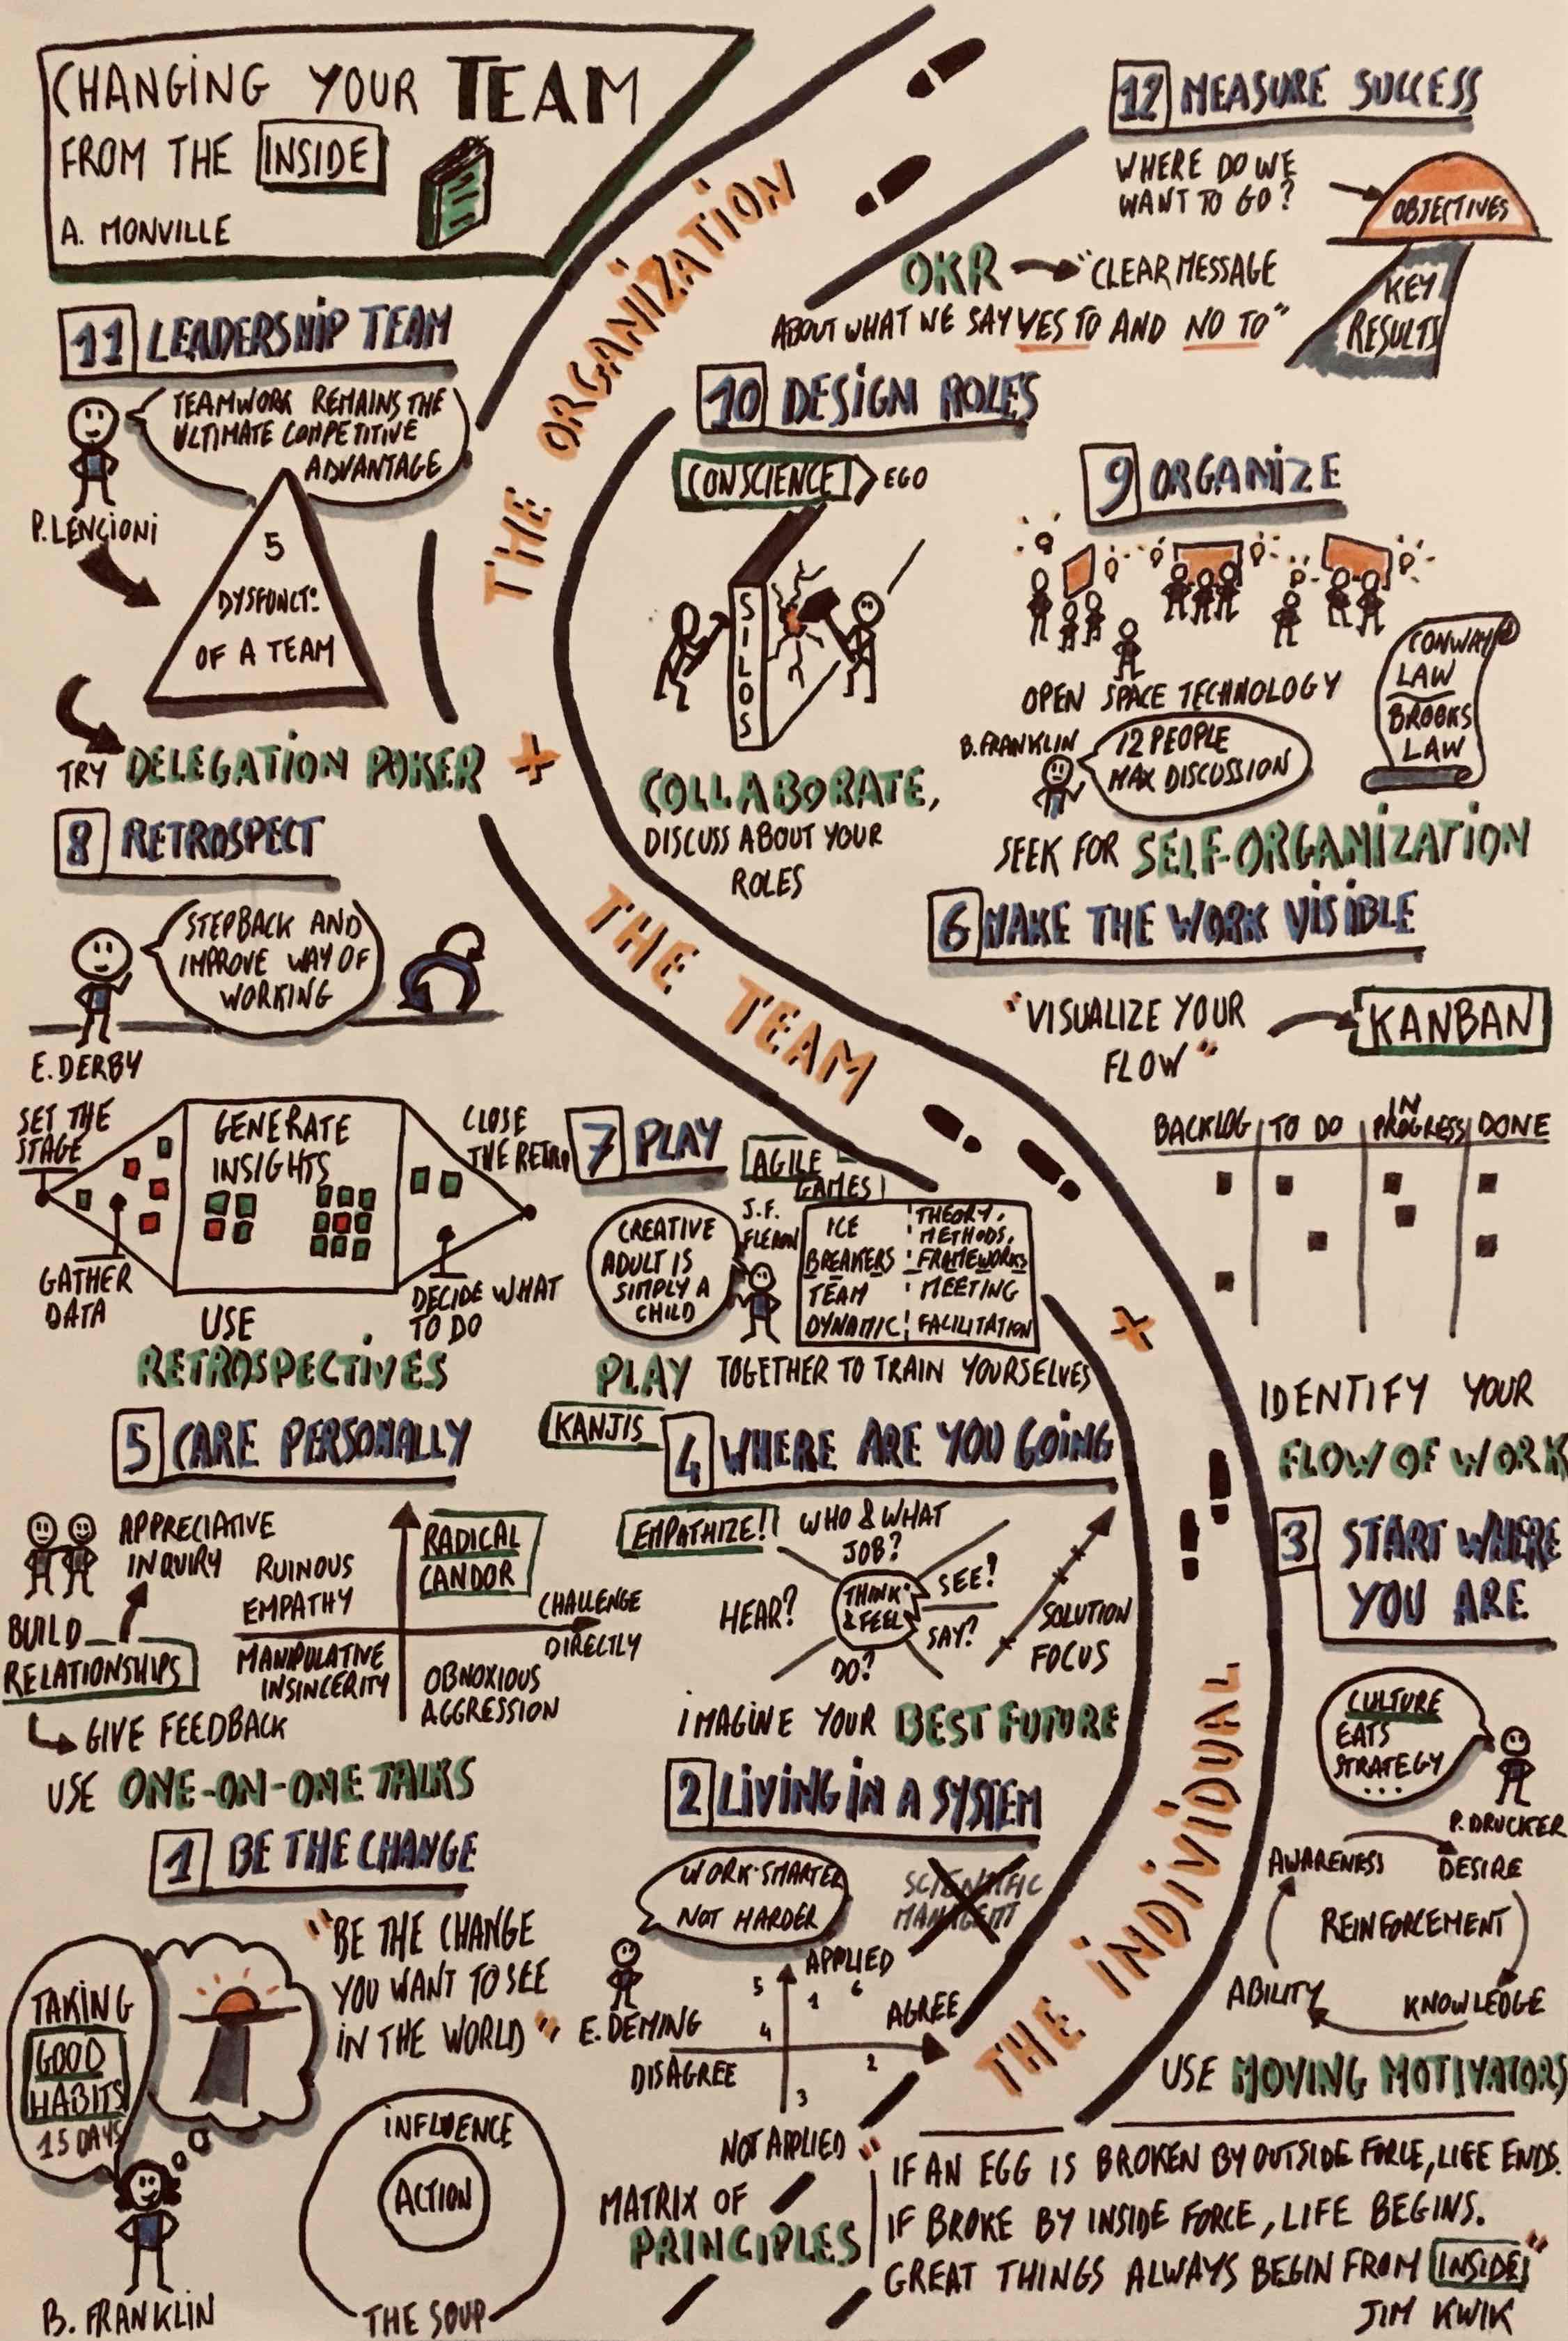 CHANGING YOUR TEAM
FROM THE INSIDE
A. MONVILLE
12 MEASURE SUCCESS
WHERE DO WE
WANT TO GO?
OBJECTIVES
KEY
RESULTS
OKR "CLEAR MESSAGE
ABOUT WHAT WE SAY YES TO AND NO TO"
THE ORGANIZATION
11 LEADERSHIP TEAM
TEAMWORK REMAINS THE
ULTIMATE COMPETITIVE
ADVANTAGE
P. LENCIONI
5
DYSFUNCT:
OF A TEAM
TRY DELEGATION POKER
10 DESIGN ROLES
CONSCIENCE! EGO
SILOS
COLLABORATE,
DISCUSS ABOUT YOUR
ROLES
9 ORGANIZE
OPEN SPACE TECHNOLOGY
CONWAY
LAW
BROOKS
LAW
B. FRANKLIN
12 PEOPLE
MAX DISCUSSION
SEEK FOR SELF-ORGANIZATION
8 RETROSPECT
STEPBACK AND
IMPROVE WAY OF
WORKING
E. DERBY
SET THE
STAGE
GATHER
DATA
GENERATE
INSIGHTS
CLOSE
THE RETRO
DECIDE WHAT
TO DO
USE
RETROSPECTIVES
THE TEAM
7 PLAY
AGILE
GAMES!
CREATIVE
ADULT IS
SIMPLY A
CHILD
J.F.
ICE
BREAKERS
TEAM
DYNAMIC
THEORY,
METHODS,
FRAMEWORKS
MEETING
FACILITATION
PLAY TOGETHER TO TRAIN YOURSELVES
6 MAKE THE WORK VISIBLE
"VISUALIZE YOUR
FLOW"
KANBAN
BACKLOG TO DO IN PROGRESS DONE
IDENTIFY YOUR
FLOW OF WORK
5 CARE PERSONALLY
APPRECIATIVE
INQUIRY
BUILD
RELATIONSHIPS
GIVE FEEDBACK
RUINOUS
EMPATHY
RADICAL
CANDOR
CHALLENGE
DIRECTLY
MANIPULATIVE
INSINCERITY
OBNOXIOUS
AGGRESSION
USE ONE-ON-ONE TALKS
KANJIS
4 WHERE ARE YOU GOING
EMPATHIZE!!
WHO & WHAT
JOB?
HEAR?
THINK
& FEEL
SEE?
SAY?
DO?
SOLUTION
FOCUS
IMAGINE YOUR BEST FUTURE
3 START WHERE
YOU ARE
CULTURE
EATS
STRATEGY
...
P. DRUCKER
AWARENESS
DESIRE
REINFORCEMENT
ABILITY
KNOWLEDGE
USE MOVING MOTIVATORS
THE INDIVIDUAL
2 LIVING IN A SYSTEM
WORK SMARTER
NOT HARDER
SCIENTIFIC
E. DEMING
APPLIED
5
1
6
AGREE
4
2
DISAGREE
3
NOT APPLIED
MATRIX OF
PRINCIPLES
1 BE THE CHANGE
"BE THE CHANGE
YOU WANT TO SEE
IN THE WORLD"
TAKING
GOOD
HABITS
15 DAYS
B. FRANKLIN
INFLUENCE
ACTION
THE SOUP
"IF AN EGG IS BROKEN BY OUTSIDE FORCE, LIFE ENDS.
IF BROKE BY INSIDE FORCE, LIFE BEGINS.
GREAT THINGS ALWAYS BEGIN FROM INSIDE"
JIM KWIK